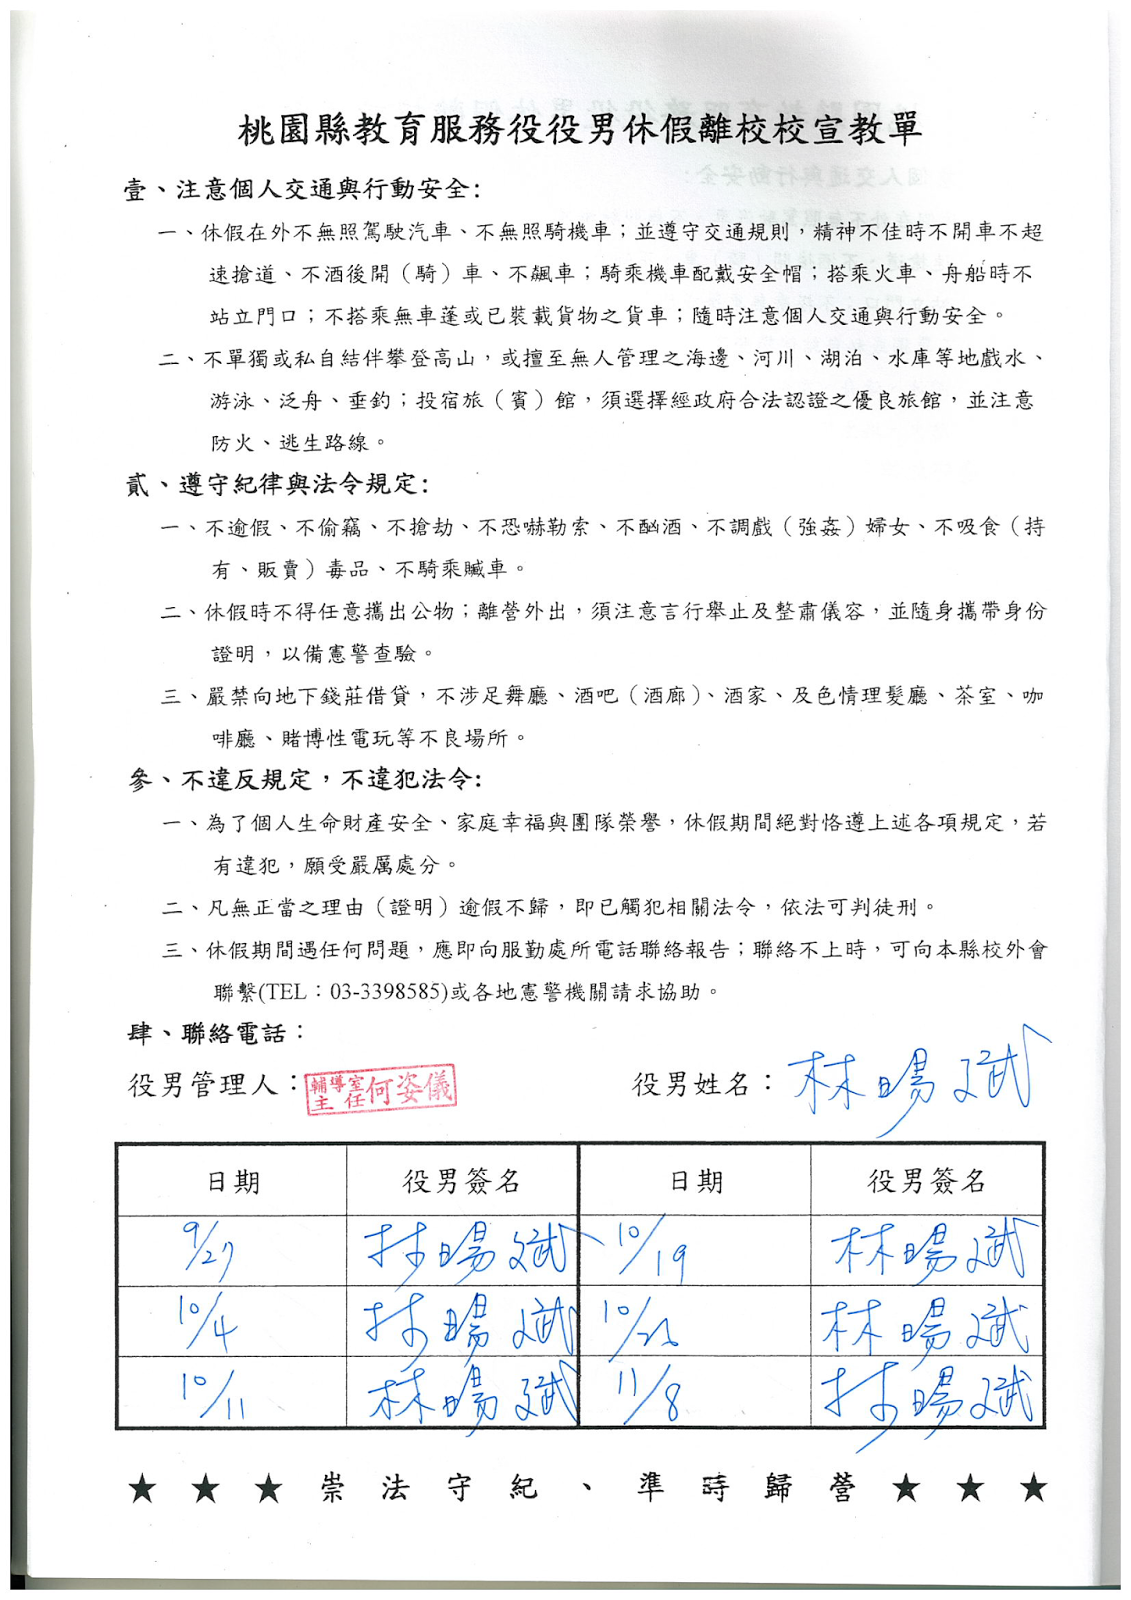 桃園縣教育服務役役男休假離校校宣教單
壹、注意個人交通與行動安全:
一、休假在外不無照駕駛汽車、不無照騎機車；並遵守交通規則，精神不佳時不開車不超
速搶道、不酒後開（騎）車、不飆車；騎乘機車配戴安全帽；搭乘火車、舟船時不
站立門口；不搭乘無車蓬或已裝載貨物之貨車；隨時注意個人交通與行動安全。
二、不單獨或私自結伴攀登高山，或擅至無人管理之海邊、河川、湖泊、水庫等地戲水、
游泳、泛舟、垂釣；投宿旅（賓）館，須選擇經政府合法認證之優良旅館，並注意
防火、逃生路線。
貳、遵守紀律與法令規定:
一、不逾假、不偷竊、不搶劫、不恐嚇勒索、不酗酒、不調戲（強姦）婦女、不吸食（持
有、販賣）毒品、不騎乘贓車。
二、休假時不得任意攜出公物；離營外出，須注意言行舉止及整肅儀容，並隨身攜帶身份
證明，以備憲警查驗。
三、嚴禁向地下錢莊借貸，不涉足舞廳、酒吧（酒廊）、酒家、及色情理髮廳、茶室、咖
啡廳、賭博性電玩等不良場所。
參、不違反規定，不違犯法令:
一、為了個人生命財產安全、家庭幸福與團隊榮譽，休假期間絕對恪遵上述各項規定，若
有違犯，願受嚴厲處分。
二、凡無正當之理由（證明）逾假不歸，即已觸犯相關法令，依法可判徒刑。
三、休假期間遇任何問題，應即向服勤處所電話聯絡報告；聯絡不上時，可向本縣校外會
聯繫(TEL：03-3398585)或各地憲警機關請求協助。
肆、聯絡電話：
役男管理人：輔導室主任何姿儀 役男姓名：林暘斌
日期 役男簽名 日期 役男簽名
9/27 林暘斌 10/19 林暘斌
10/4 林暘斌 10/26 林暘斌
10/11 林暘斌 11/8 林暘斌
★ ★ ★ 崇法守紀、準時歸營 ★ ★ ★